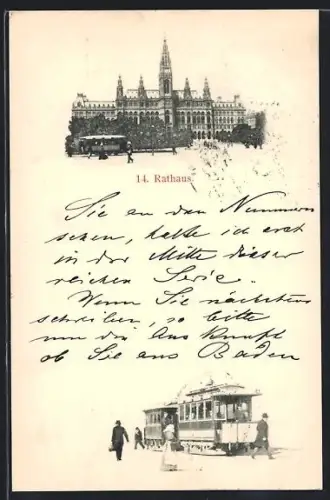 14. Rathaus.
Sie an den Nummern
sehen, halte ich erst
in der Mitte dieser
reichen Serie.
Wenn Sie nächstens
schreiben, so bitte
um die Auskunft
ob Sie aus Baden